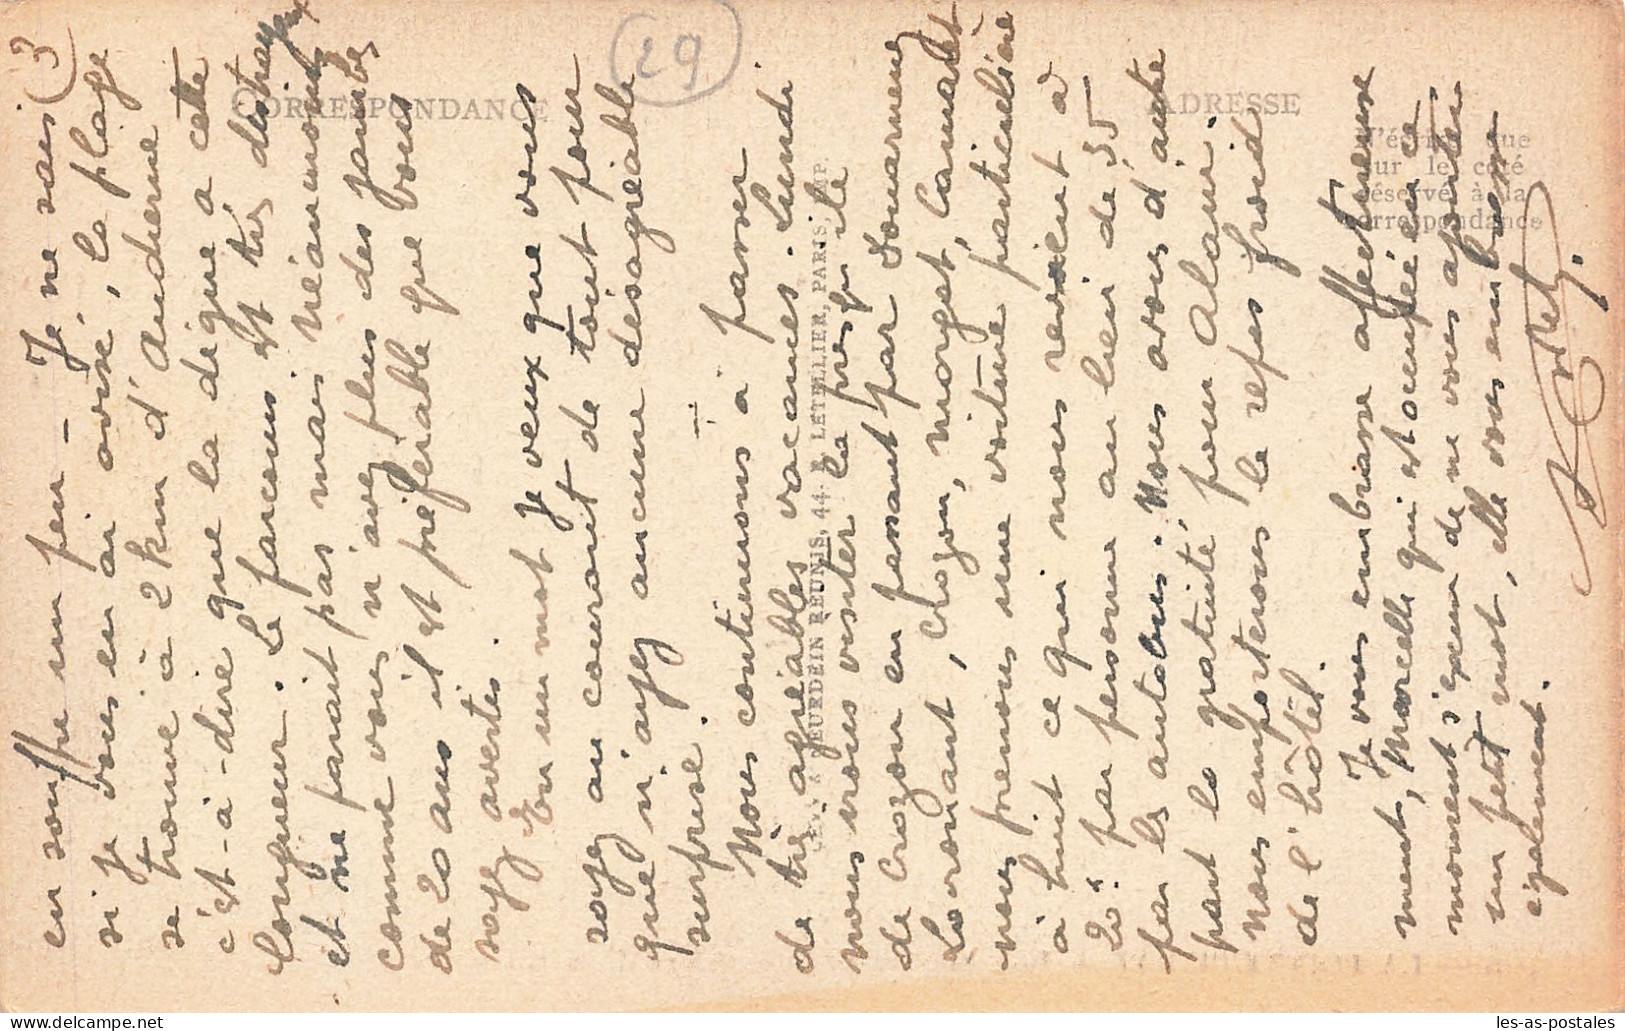 (3
29
CORRESPONDANCE
ADRESSE
N'écrire que
sur le côté
réservé à la
correspondance
LEVY & NEURDEIN RÉUNIS, 44. R. LETELLIER, PARIS. IMP.
en souffre un peu - Je ne sais
si je vous en ai avisé, la plage
se trouve à 2 km d'Audierne
c'est-à-dire que la digue a cette
longueur. Le parcours est très
et ne parait pas mais néanmoins
comme vous n'avez plus des jambes
de 20 ans il est préférable que vous
soyez avertis.
En un mot je veux que vous
soyez au courant de tout pour
que n'ayez aucune désagréable
surprise. —
Nous continuons à passer
de très agréables vacances. Lundi
nous irons visiter la presqu'ile
de Crozon en passant par Douarnenez
Locronant, Crozon, Morgat, Camaret
nous prenons une voiture particulière
à huit ce qui nous revient à
20. par personne au lieu de 35
par les autobus. Nous avons d'autre
part la gratuité pour Alain.
Nous emporterons le repas froid
de l'hôtel.
Je vous embrasse affectueuse
ment, Marcelle qui est occupée en ce
moment s'excuse de ne vous ajouter
un petit mot, elle vous embrasse
également.